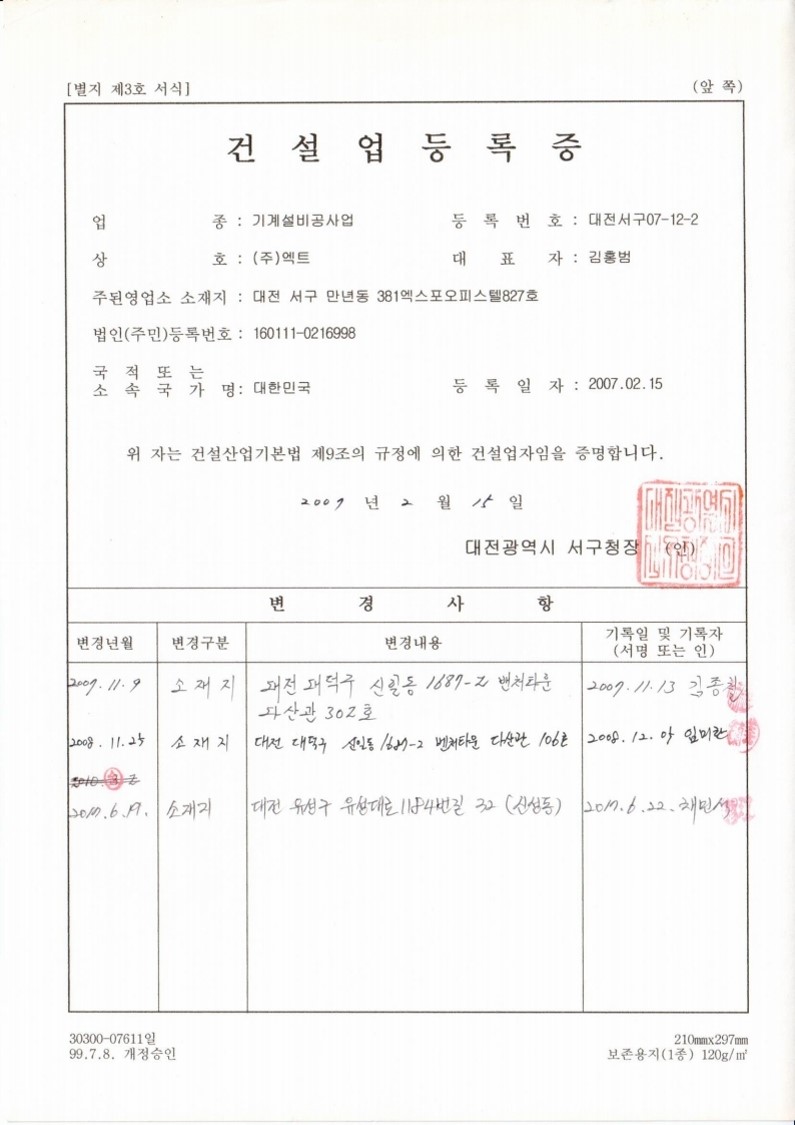 [별지 제3호 서식]
(앞 쪽)
건 설 업 등 록 증
업 종 : 기계설비공사업
등 록 번 호 : 대전서구07-12-2
상 호 : (주)엑트
대 표 자 : 김홍범
주된영업소 소재지 : 대전 서구 만년동 381엑스포오피스텔827호
법인(주민)등록번호 : 160111-0216998
국 적 또 는
소 속 국 가 명: 대한민국
등 록 일 자 : 2007.02.15
위 자는 건설산업기본법 제9조의 규정에 의한 건설업자임을 증명합니다.
2007 년 2 월 15 일
대전광역시 서구청장 (인)
변 경 사 항
변경년월 변경구분 변경내용 기록일 및 기록자
(서명 또는 인)
2007. 11. 9 소 재 지 대전 대덕구 신일동 1687-2 벤처타운 2007. 11. 13 김종
다산관 302호
2008. 11. 25 소 재 지 대전 대덕구 신일동 1687-2 벤처타운 다산관 106호 2008. 12. 임미란
2017. 6. 19. 소재지 대전 유성구 유성대로1184번길 32 (신성동) 2017. 6. 22. 채민석
30300-07611일
99.7.8. 개정승인
210mmx297mm
보존용지(1종) 120g/㎡